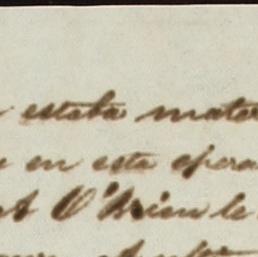 estaba mater
en esta opera
O'Brien le